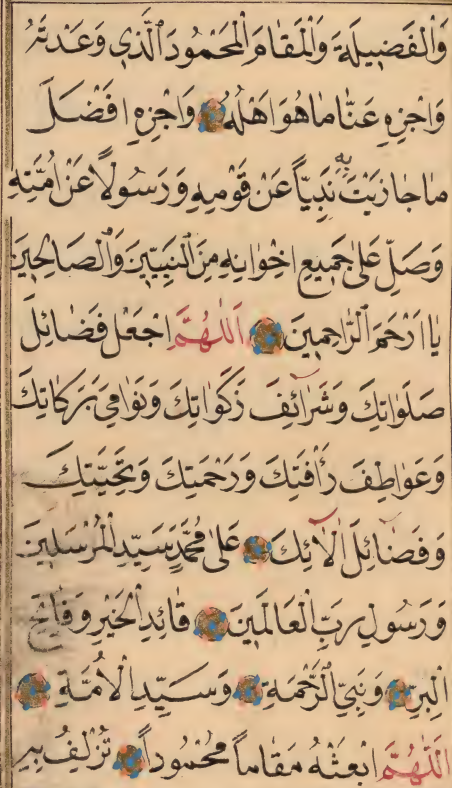 وَالْفَضِيلَةَ وَالْمَقَامَ الْمَحْمُودَ الَّذِي وَعَدْتَهُ
وَاجْزِهِ عَنَّا مَا هُوَ اَهْلُهُ وَاجْزِهِ اَفْضَلَ
مَا جَازَيْتَ بِهِ نَبِيّاً عَنْ قَوْمِهِ وَرَسُولاً عَنْ اُمَّتِهِ
وَصَلِّ عَلٰى جَمِيعِ اِخْوَانِهِ مِنَ النَّبِيّينَ وَالصَّالِحِينَ
يَا اَرْحَمَ الرَّاحِمِينَ اَللّٰهُمَّ اجْعَلْ فَضَائِلَ
صَلَوَاتِكَ وَشَرَائِفَ زَكَوَاتِكَ وَنَوَامِىَ بَرَكَاتِكَ
وَعَوَاطِفَ رَأْفَتِكَ وَرَحْمَتِكَ وَتَحِيَّتِكَ
وَفَضَائِلَ اٰلَائِكَ عَلٰى مُحَمَّدٍ سَيِّدِ الْمُرْسَلِينَ
وَرَسُولِ رَبِّ الْعَالَمِينَ قَائِدِ الْخَيْرِ وَفَاتِحِ
الْبِرِّ وَنَبِىِّ الرَّحْمَةِ وَسَيِّدِ الْاُمَّةِ
اَللّٰهُمَّ ابْعَثْهُ مَقَاماً مَحْمُوداً تُزْلِفُ بِهِ